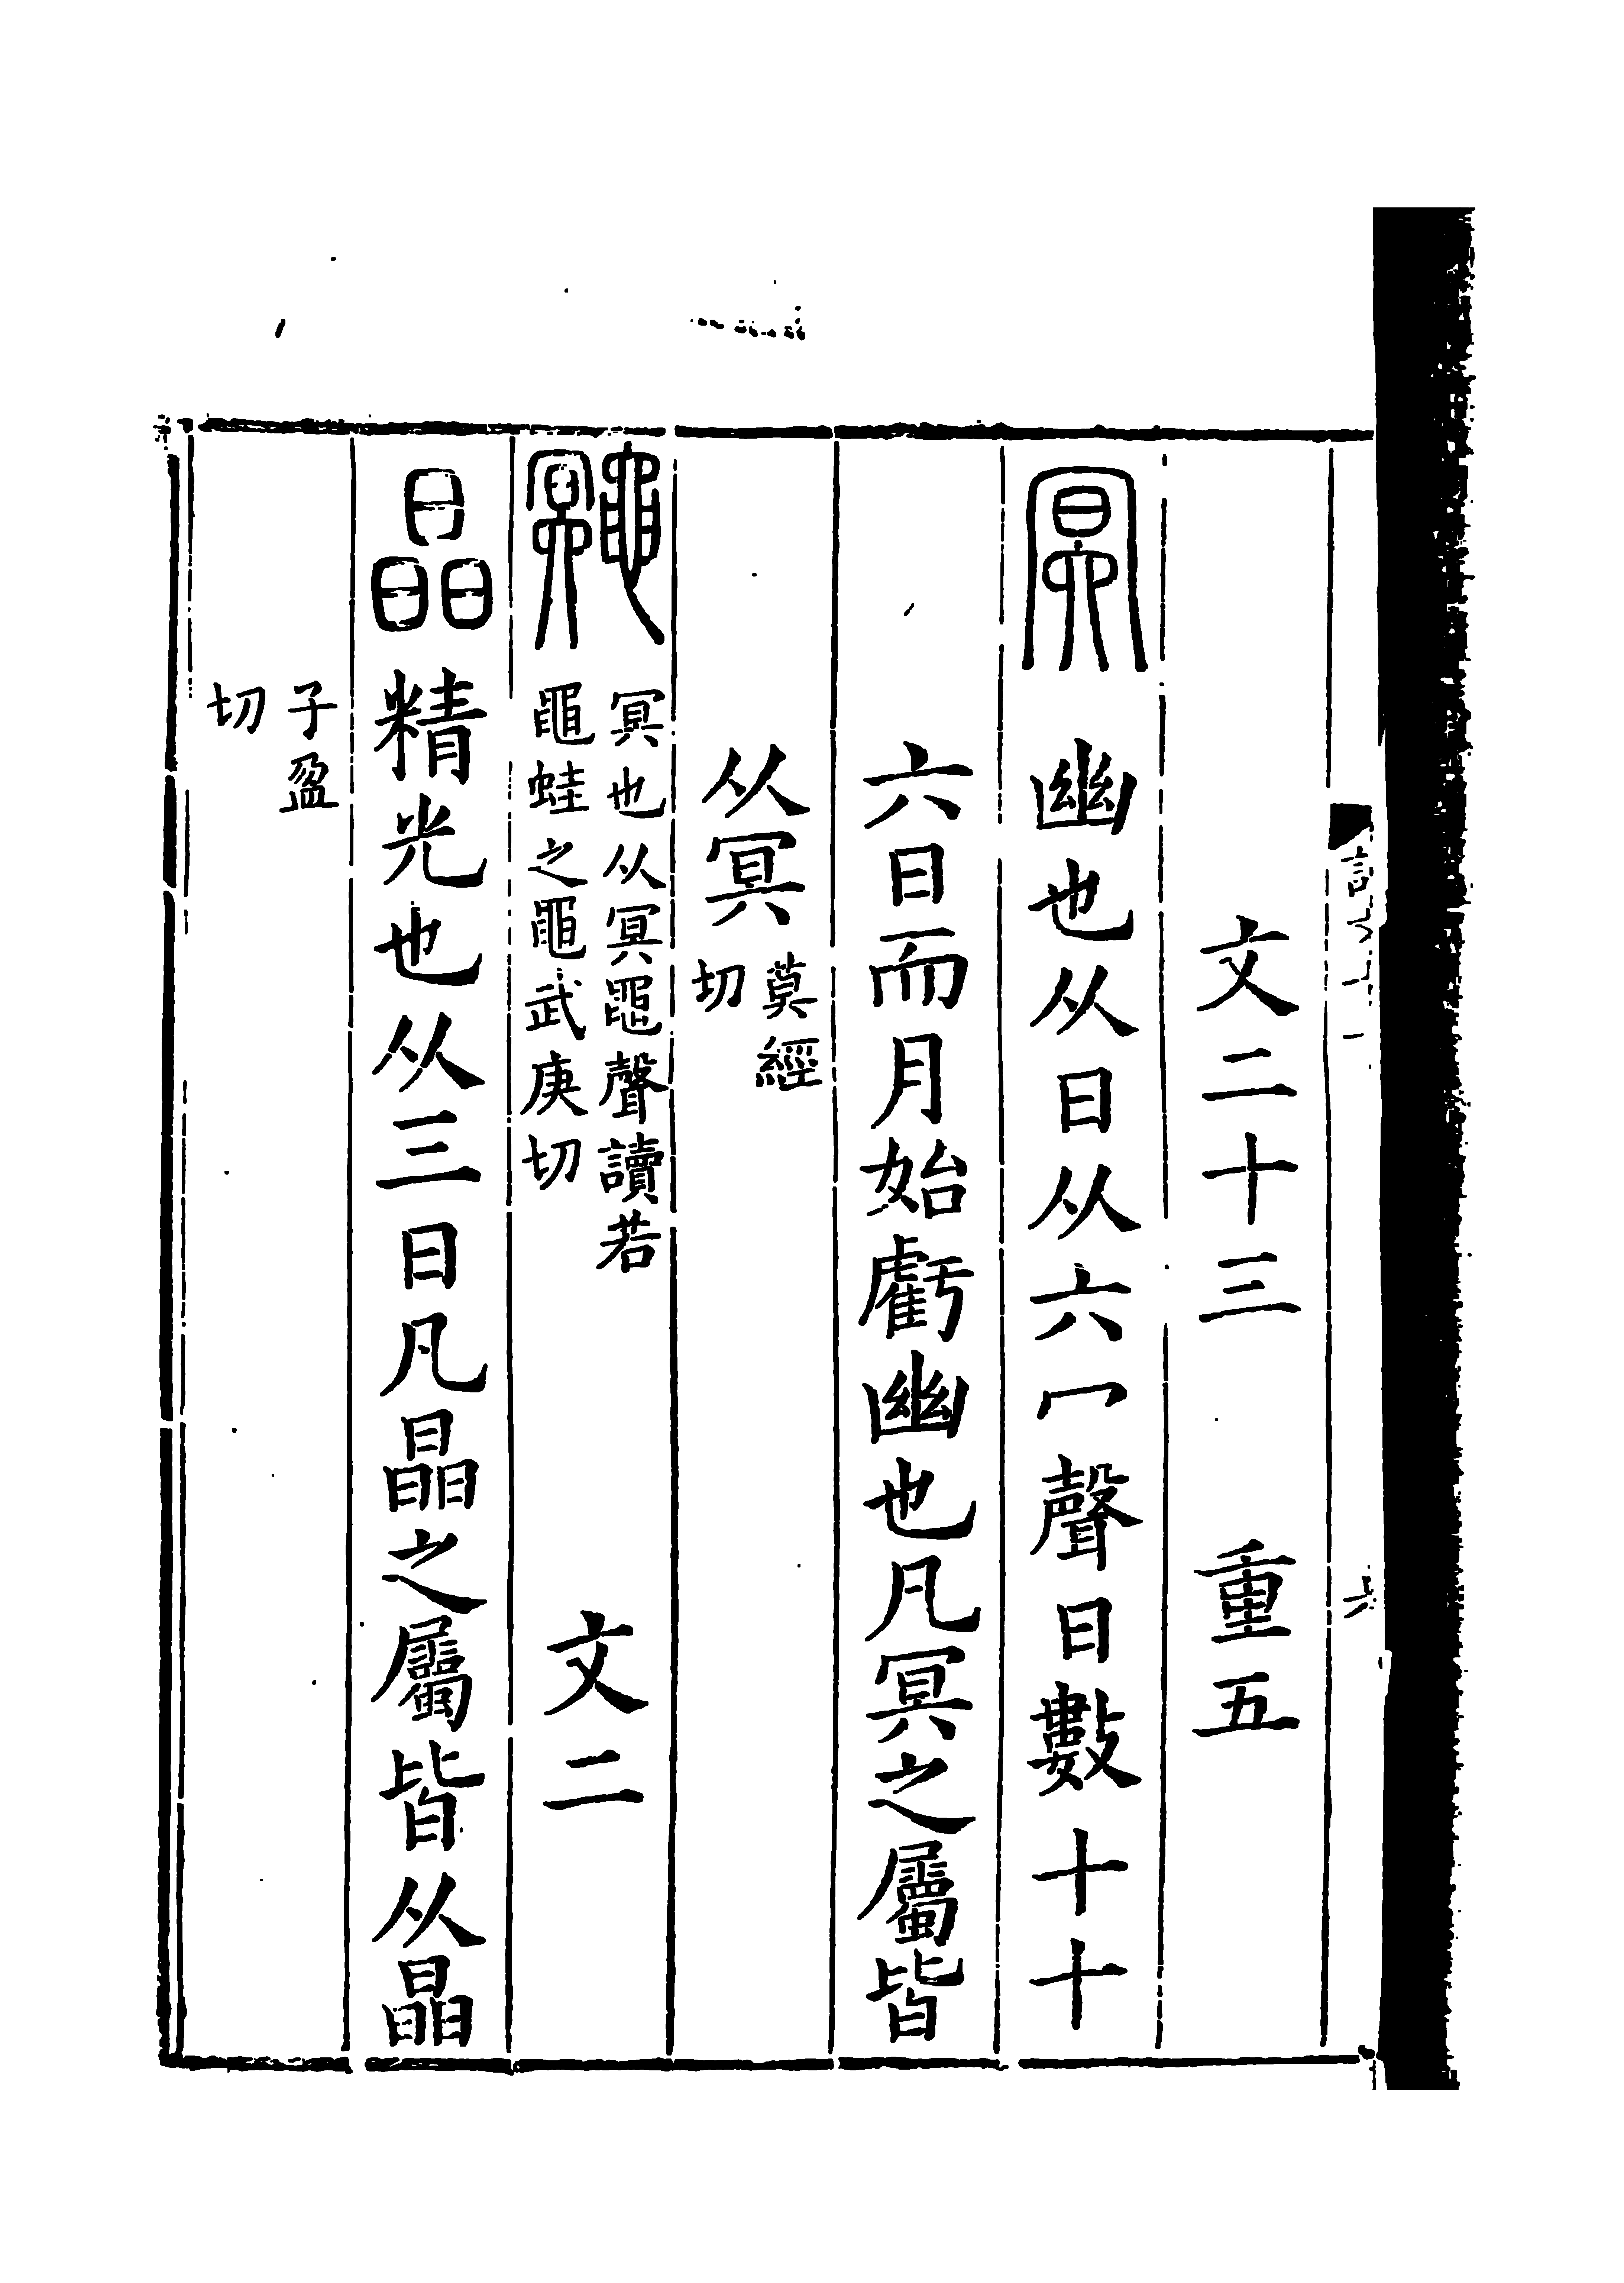 文二十三　重五
冥　幽也从日从六冖聲日數十十
六日而月始虧幽也凡冥之屬皆
从冥莫經切
鼆冥也从冥黽聲讀若黽蛙之黽武庚切　文二
晶精光也从三日凡晶之屬皆从晶
子盈切
六